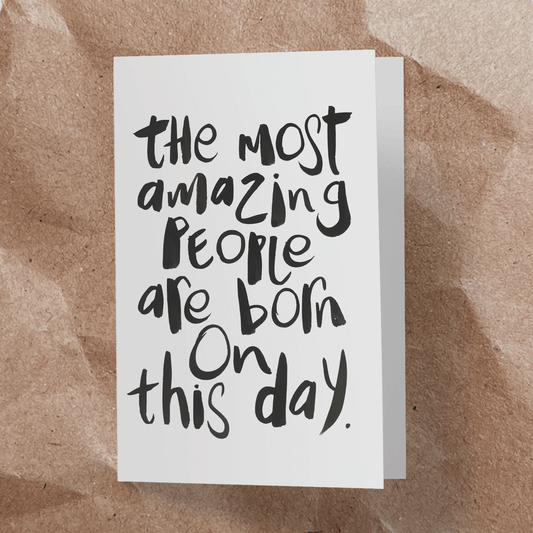 the most
amazing
PEOPLE
are born
On
this day.